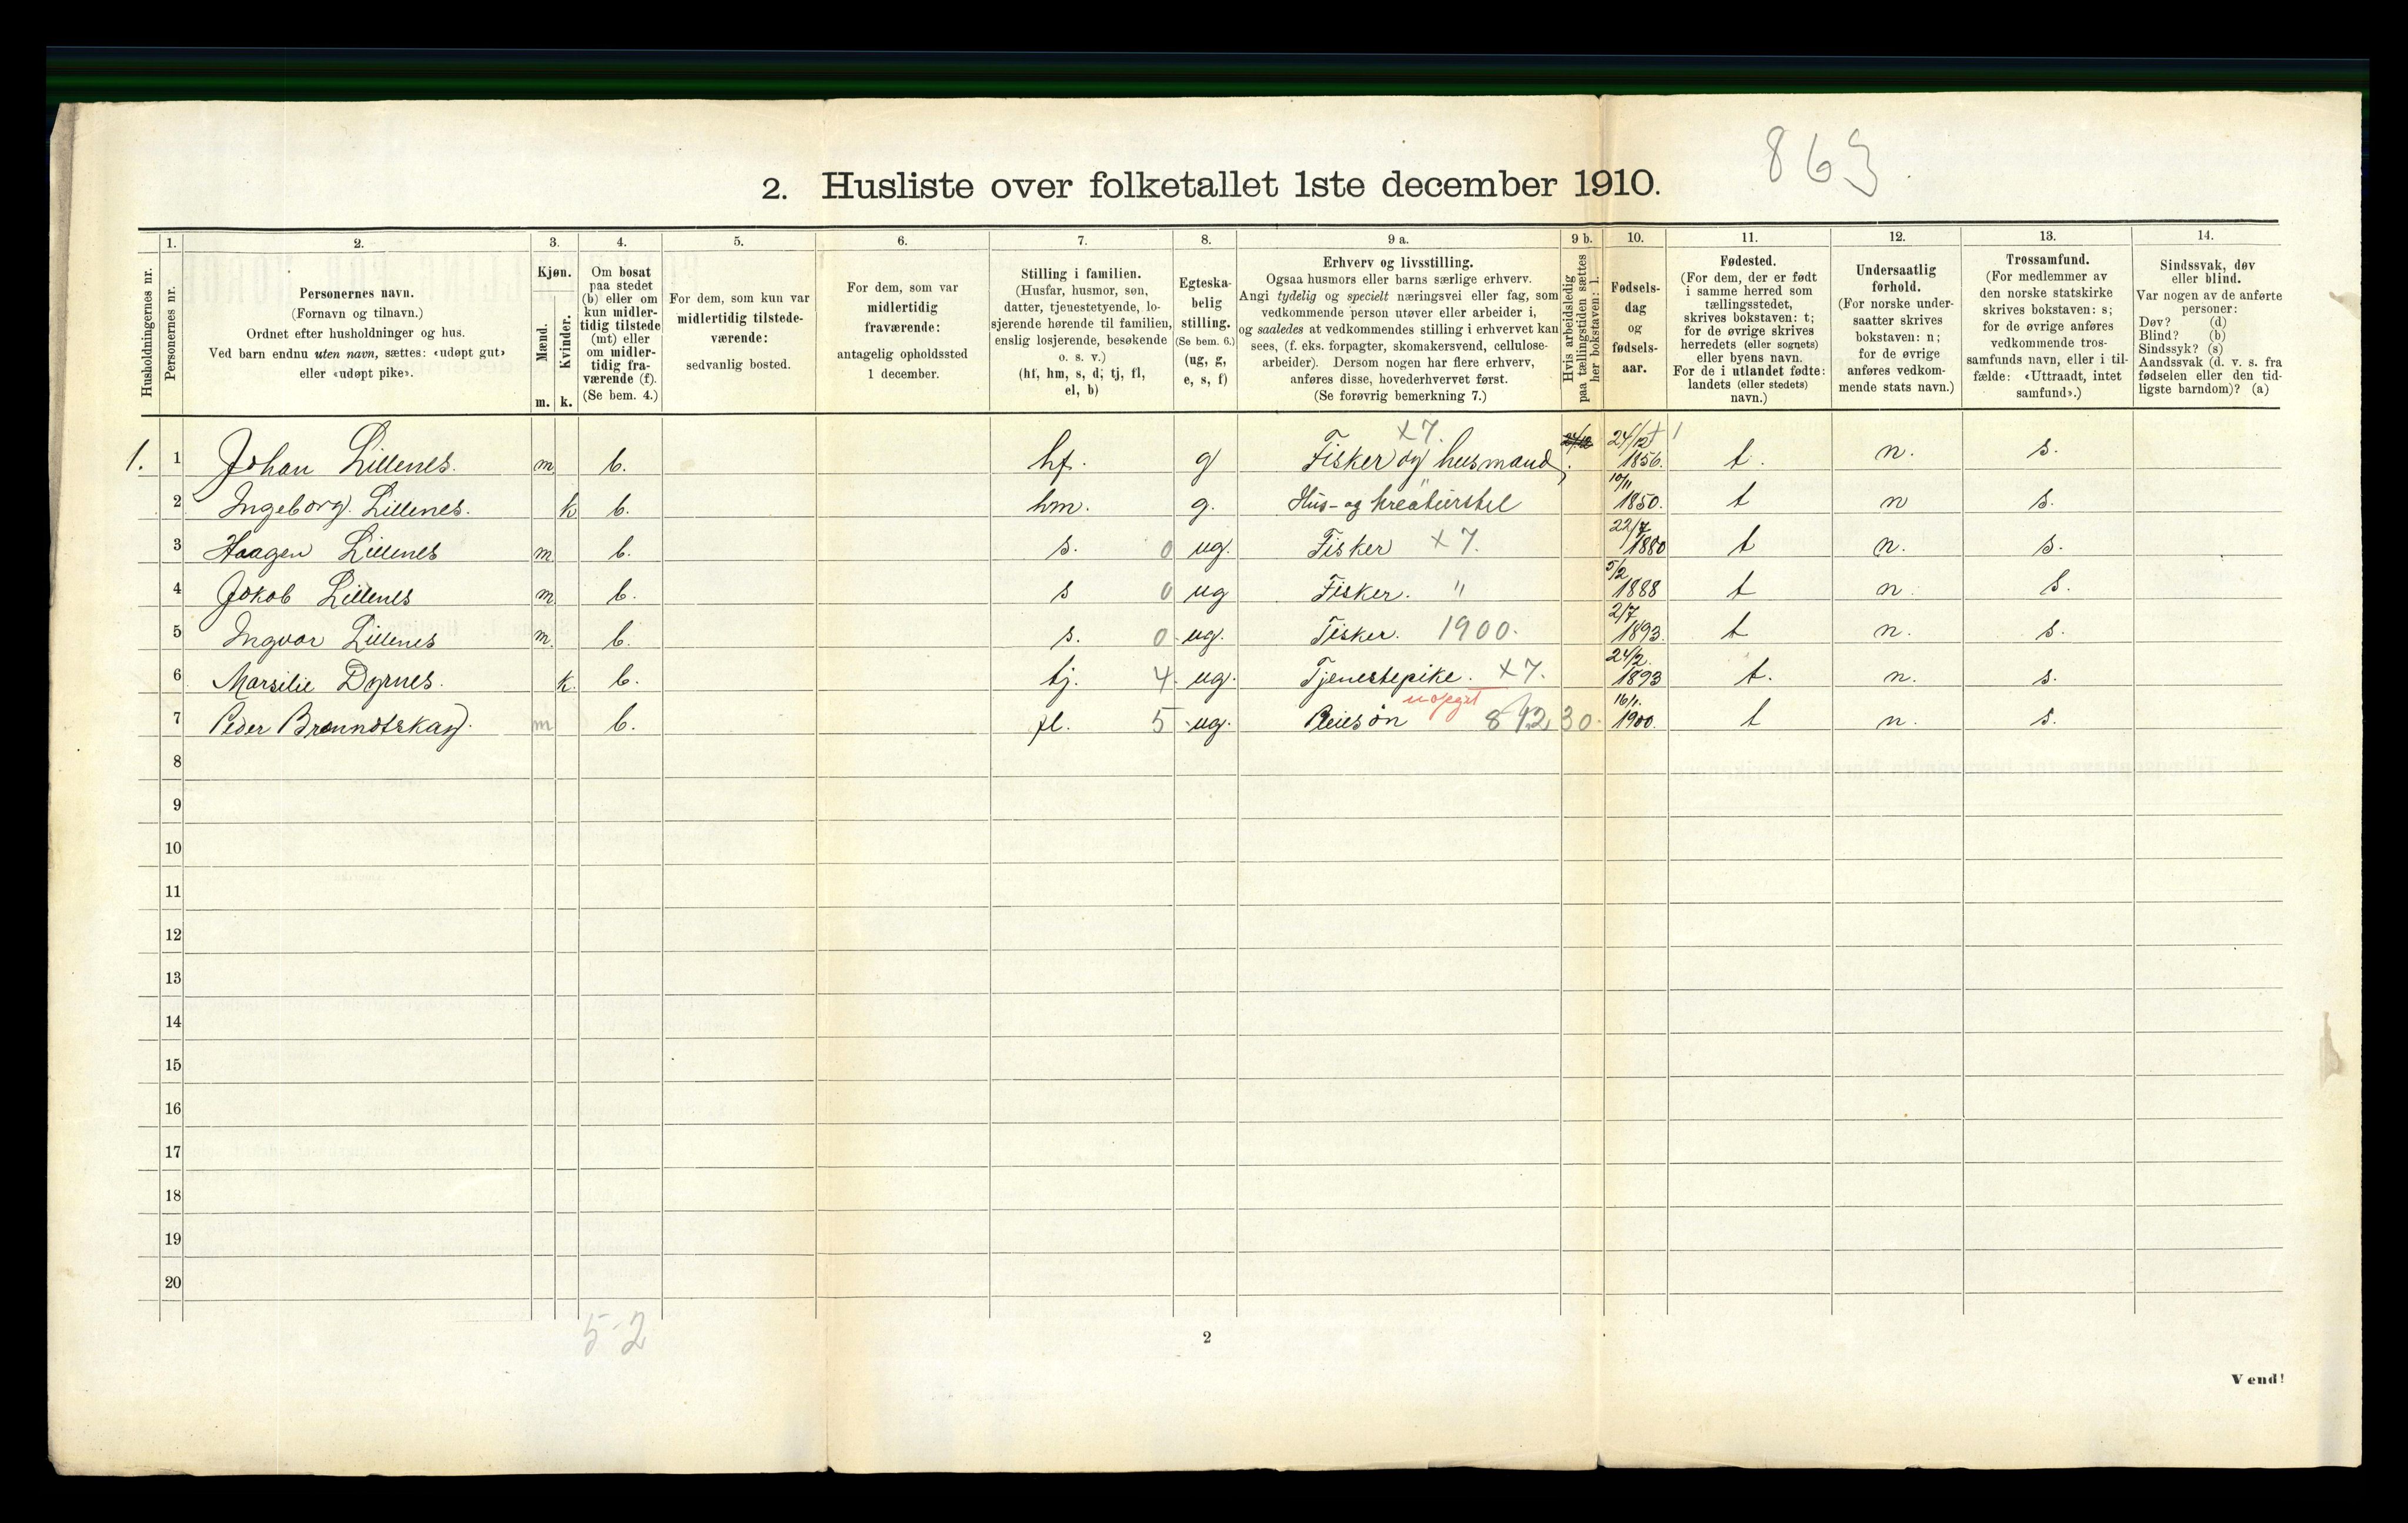 863.
2. Husliste over folketallet 1ste december 1910.
Husholdningernes nr.
1.
Personernes nr.
2.
Personernes navn.
(Fornavn og tilnavn.)
Ordnet efter husholdninger og hus.
Ved barn endnu uten navn, sættes: «udøpt gut»
eller «udøpt pike».
3.
Kjøn.
Mænd.
Kvinder.
m. k.
4.
Om bosat
paa stedet
(b) eller om
kun midler-
tidig tilstede
(mt) eller
om midler-
tidig fra-
værende (f).
(Se bem. 4.)
5.
For dem, som kun var
midlertidig tilstede-
værende:
sedvanlig bosted.
6.
For dem, som var
midlertidig
fraværende:
antagelig opholdssted
1 december.
7.
Stilling i familien.
(Husfar, husmor, søn,
datter, tjenestetyende, lo-
sjerende hørende til familien,
enslig losjerende, besøkende
o. s. v.)
(hf, hm, s, d, tj, fl,
el, b)
8.
Egteska-
belig
stilling.
(Se bem. 6.)
(ug, g,
e, s, f)
9 a.
Erhverv og livsstilling.
Ogsaa husmors eller barns særlige erhverv.
Angi tydelig og specielt næringsvei eller fag, som
vedkommende person utøver eller arbeider i,
og saaledes at vedkommendes stilling i erhvervet kan
sees, (f. eks. forpagter, skomakersvend, cellulose-
arbeider). Dersom nogen har flere erhverv,
anføres disse, hovederhvervet først.
(Se forøvrig bemerkning 7.)
9 b.
Hvis arbeidsledig
paa tællingstiden sættes
her bokstaven: l.
10.
Fødsels-
dag
og
fødsels-
aar.
11.
Fødested.
(For dem, der er født
i samme herred som
tællingsstedet,
skrives bokstaven: t;
for de øvrige skrives
herredets (eller sognets)
eller byens navn.
For de i utlandet fødte:
landets (eller stedets)
navn.)
12.
Undersaatlig
forhold.
(For norske under-
saatter skrives
bokstaven: n;
for de øvrige
anføres vedkom-
mende stats navn.)
13.
Trossamfund.
(For medlemmer av
den norske statskirke
skrives bokstaven: s;
for de øvrige anføres
vedkommende tros-
samfunds navn, eller i til-
fælde: «Uttraadt, intet
samfund».)
14.
Sindssvak, døv
eller blind.
Var nogen av de anførte
personer:
Døv? (d)
Blind? (b)
Sindssyk? (s)
Aandssvak (d. v. s. fra
fødselen eller den tid-
ligste barndom)? (a)
1. 1 Johan Lillenes. m b. hf. g x7. Fisker og husmand 24/12 1856. t. n. s.
2 Ingeborg Lillenes. k b. hm. g. Hus- og kreaturstel 10/11 1850. t n s.
3 Haagen Lillenes m b. s. 0 ug. Fisker x7. 22/7 1880 t n. s.
4 Jokob Lillenes m b. s 0 ug Fisker. " 5/2 1888 t n. s.
5 Ingvar Lillenes m. b. s. 0 ug. Fisker. 1900. 2/7 1893. t n. s.
6 Marsilie Dyrnes. k. b. tj. 4. ug. Tjenestepike. x7. 24/2. 1893 t. n. s.
7 Peder Brenndtskag. m b. fl. 5 ug. Pleiesøn 30. 16/1. 1900. t n. s.
8
9
10
11
12
13
14
15
16
17
18
19
20
5-2
2
Vend!